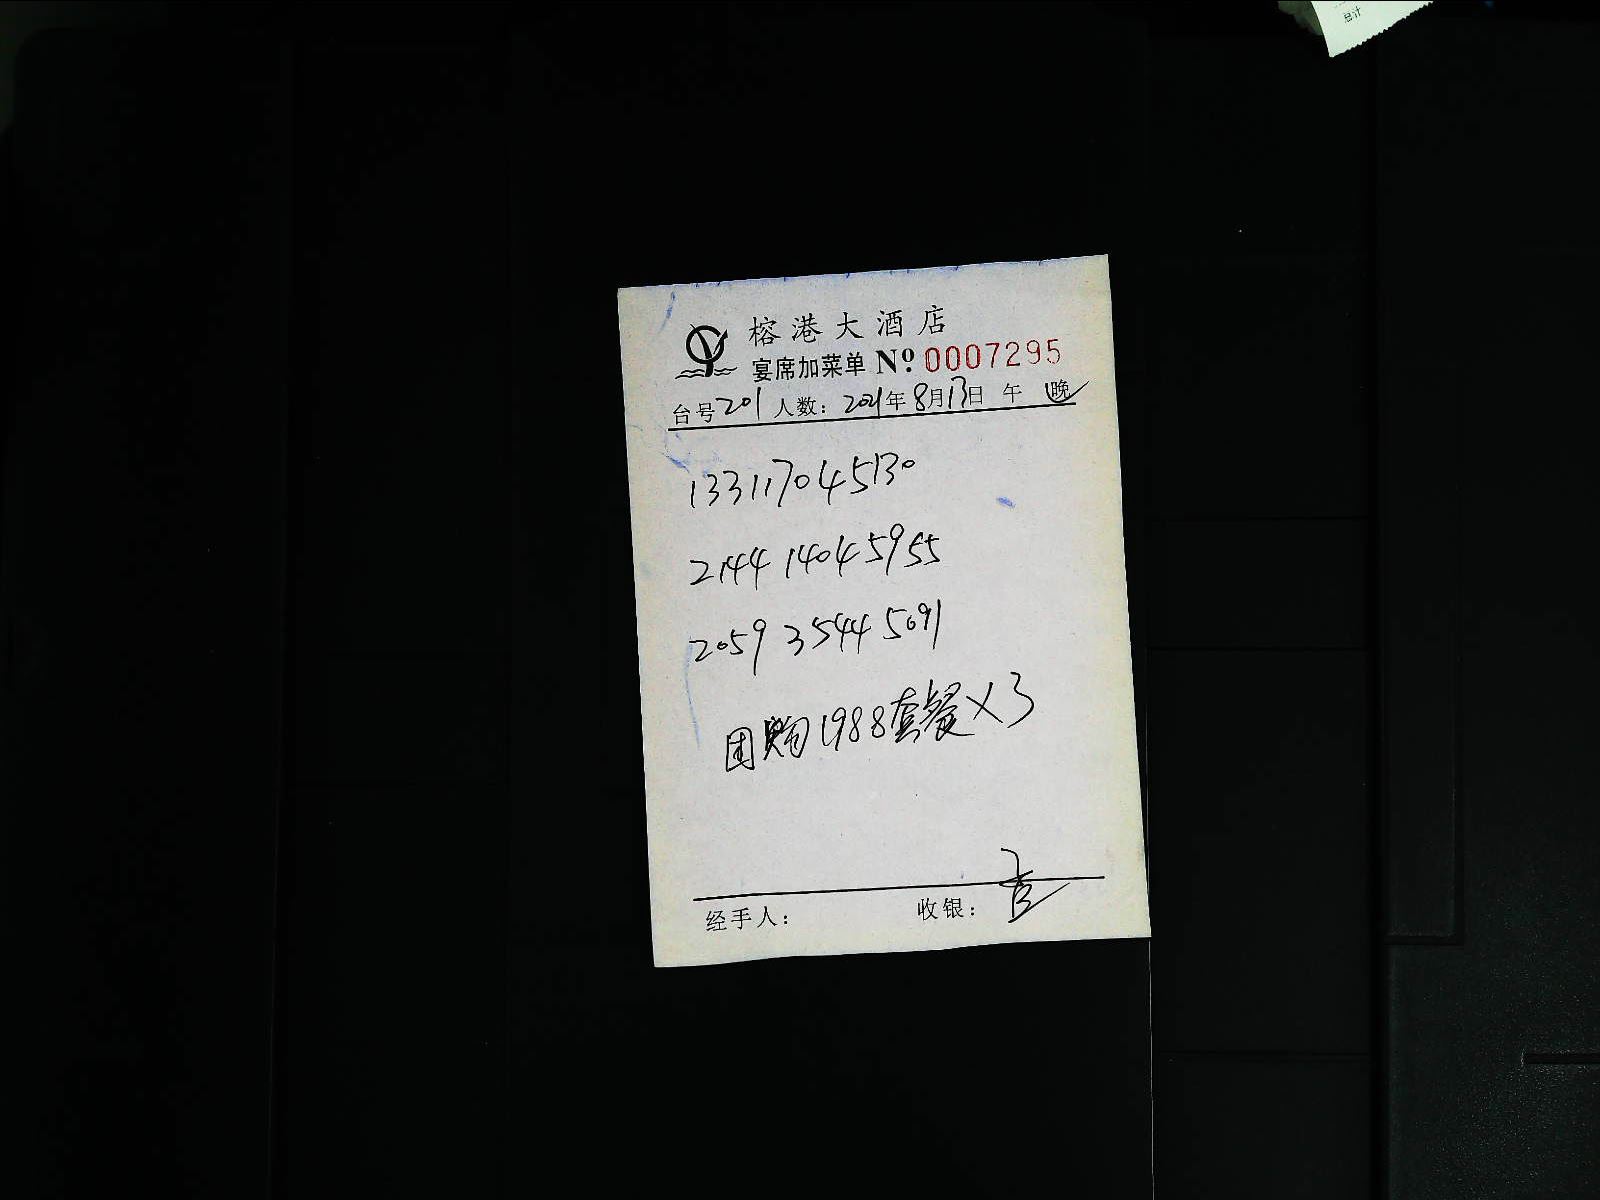 总计
榕港大酒店
宴席加菜单 Nº 0007295
台号 201 人数: 2021年 8月 13日 午 晚
133117045130
2144 1404 5955
2059 3544 5091
团购1988套餐×3
经手人: 收银: